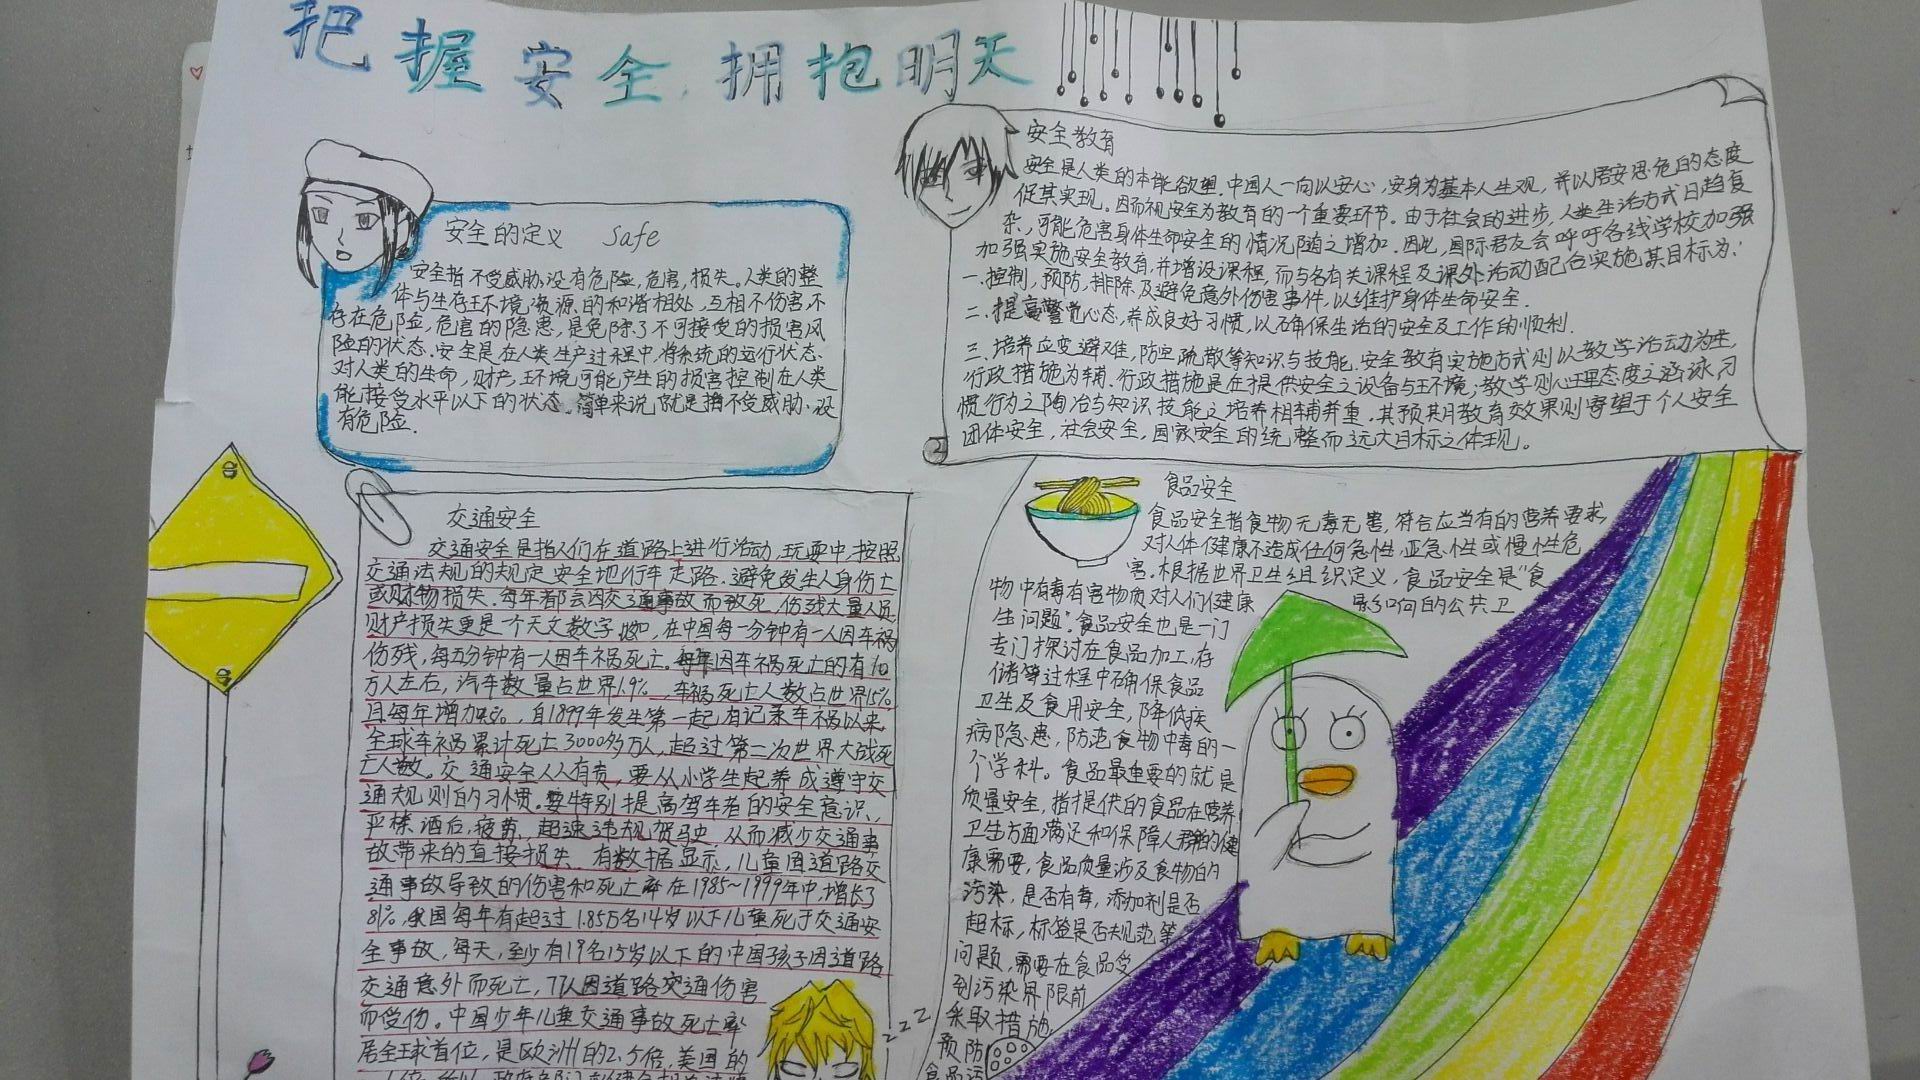 把握安全,拥抱明天
安全的定义 Safe
安全指不受威胁,没有危险,危害,损失。人类的整
体与生存环境资源的和谐相处,互相不伤害,不
存在危险,危害的隐患,是免除了不可接受的损害风
险的状态.安全是在人类生产过程中,将系统的运行状态
对人类的生命,财产,环境可能产生的损害控制在人类
能接受水平以下的状态。简单来说就是指不受威胁、没
有危险.
安全教育
安全是人类的本能欲望.中国人一向以安心,安身为基本人生观,并以居安思危的态度
促其实现。因而视安全为教育的一个重要环节。由于社会的进步,人类生活方式日趋复
杂,可能危害身体生命安全的情况随之增加.因此,国际君友会呼吁各线学校加强
加强实施安全教育,并增设课程,而与各有关课程及课外活动配合实施其目标为:
一.控制,预防,排除及避免意外伤害事件,以维护身体生命安全.
二.提高警觉心态,养成良好习惯,以确保生活的安全及工作的顺利.
三.培养应变避难,防空疏散等知识与技能.安全教育实施方式则以教学活动为主,
行政措施为辅.行政措施是在提供安全之设备与环境;教学则心理态度之涵泳,习
惯行为之陶冶与知识技能之培养相辅并重.其预期教育效果则寄望于个人安全
团体安全,社会安全,国家安全的统整而远大目标之体现。
交通安全
交通安全是指人们在道路上进行活动,玩耍中,按照
交通法规的规定安全地行车走路.避免发生人身伤亡
或财物损失.每年都会因交通事故而致死,伤残大量人员,
财产损失更是一个天文数字 如,在中国每一分钟有一人因车祸
伤残,每五分钟有一人因车祸死亡.每年因车祸死亡的有10
万人左右,汽车数量占世界1.9%,车祸死亡人数占世界15%
且每年增加4.5%,自1899年发生第一起,有记录车祸以来
全球车祸累计死亡3000多万人,超过第二次世界大战死
亡人数。交通安全人人有责,要从小学生起养成遵守交
通规则的习惯。要特别提高驾车者的安全意识、
严禁酒后,疲劳,超速违规驾驶.从而减少交通事
故带来的直接损失.有数据显示,儿童因道路交
通事故导致的伤害和死亡率在1985~1999年中,增长了
81%,我国每年有超过1.85万名14岁以下儿童死于交通安
全事故,每天,至少有19名15岁以下的中国孩子因道路
交通意外而死亡,77人因道路交通伤害
而受伤。中国少年儿童交通事故死亡率
居全球首位,是欧洲的2.5倍,美国的
食品安全
食品安全指食物无毒无害,符合应当有的营养要求,
对人体健康不造成任何急性亚急性或慢性危
害.根据世界卫生组织定义,食品安全是“食
物中有毒有害物质对人们健康影响的公共卫
生问题”.食品安全也是一门
专门探讨在食品加工,存
储等过程中确保食品
卫生及食用安全,降低疾
病隐患,防范食物中毒的一
个学科。食品最重要的就是
质量安全,指提供的食品在营养
卫生方面满足和保障人群的健
康需要,食品质量涉及食物的
污染,是否有毒,添加剂是否
超标,标签是否规范等
问题,需要在食品受
到污染界限前
采取措施,
预防
食品污
zzz